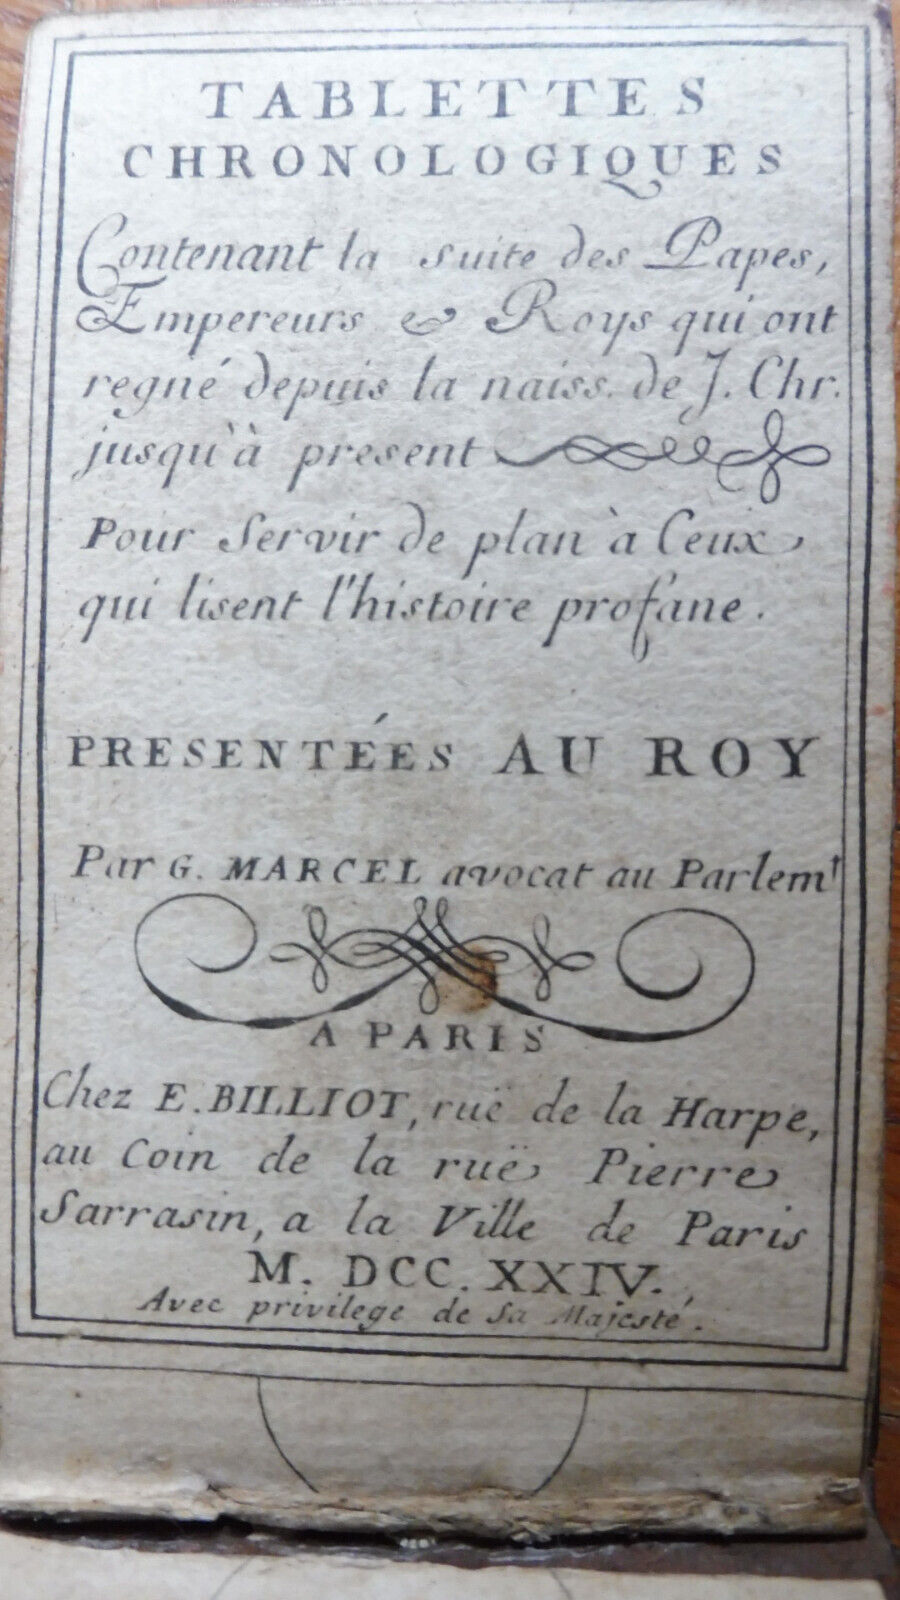 TABLETTES
CHRONOLOGIQUES
Contenant la suite des Papes,
Empereurs & Roys qui ont
regné depuis la naiss. de J. Chr.
jusqu'à present
Pour servir de plan à Ceux
qui lisent l'histoire profane.
PRESENTÉES AU ROY
Par G. MARCEL avocat au Parlemt
A PARIS
Chez E. BILLIOT, ruë de la Harpe,
au Coin de la ruë Pierre
Sarrasin, a la Ville de Paris
M. DCC. XXIV.
Avec privilege de Sa Majesté.